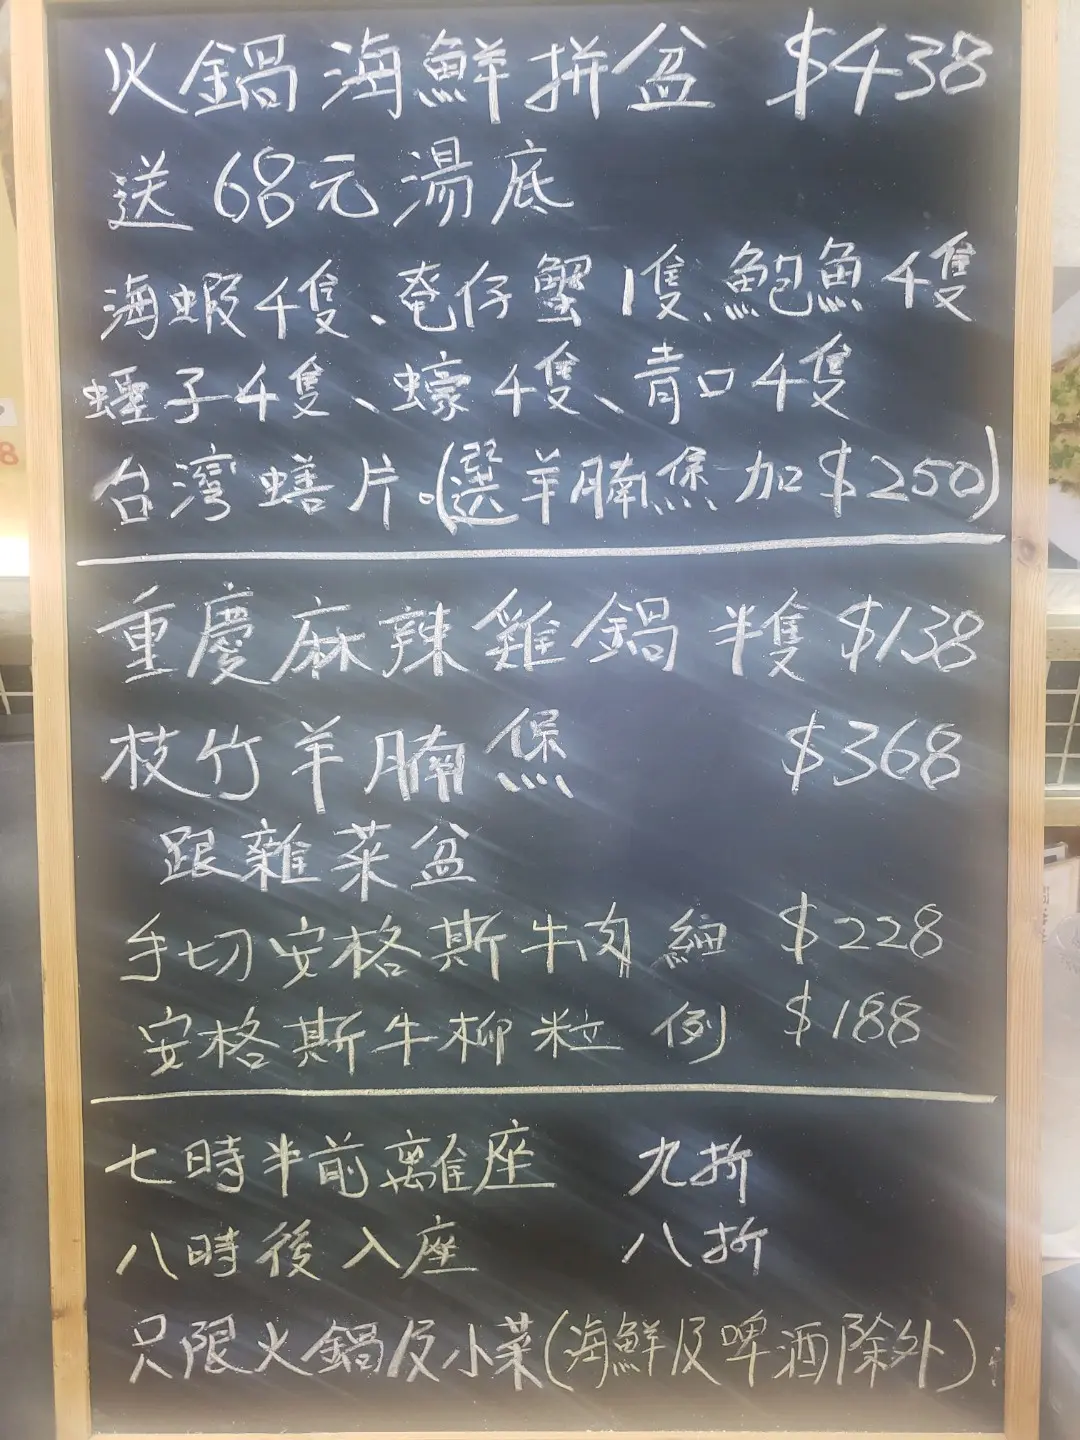 火鍋海鮮拼盆 $438
送 68元湯底
海蝦4隻、奄仔蟹1隻、鮑魚4隻
蟶子4隻、蠔4隻、青口4隻
台灣蟮片。(選羊腩煲加$250)
重慶麻辣雞鍋 半隻 $138
枝竹羊腩煲 $368
跟雜菜盆
手切安格斯牛肉 細 $228
安格斯牛柳粒 例 $188
七時半前離座 九折
八時後入座 八折
只限火鍋及小菜(海鮮及啤酒除外)